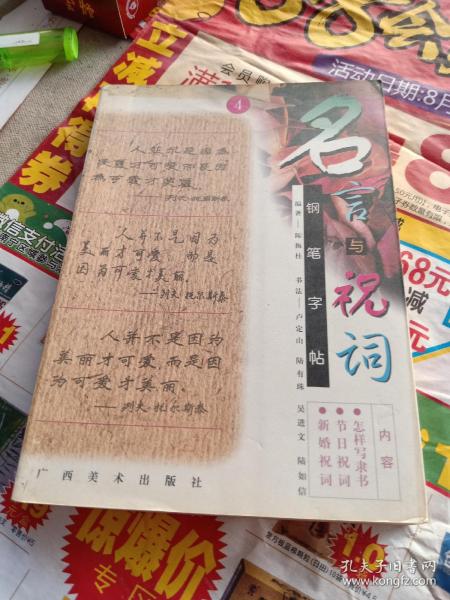 会员购
满
活动日期:8月
立减
得券
微信支付
50元
68元
减
元
4
名言与祝词
钢笔字帖
编著—陈梅桂 书法—卢定山 陆有珠 吴进文 陆如信
人并不是因为
美丽才可爱而是因
为可爱才美丽
——列夫·托尔斯泰
人并不是因为
美丽才可爱 而是
因为可爱才美丽
——列夫·托尔斯泰
人并不是因为
美丽才可爱,而是因
为可爱才美丽。
——列夫·托尔斯泰
内容
●怎样写隶书
●节日祝词
●新婚祝词
广西美术出版社
惊爆价
孔夫子旧书网